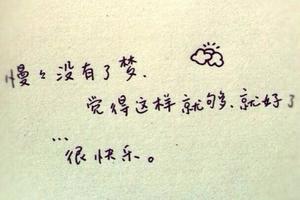 慢々没有了梦.
觉得这样就够.就好了
...
很快乐。